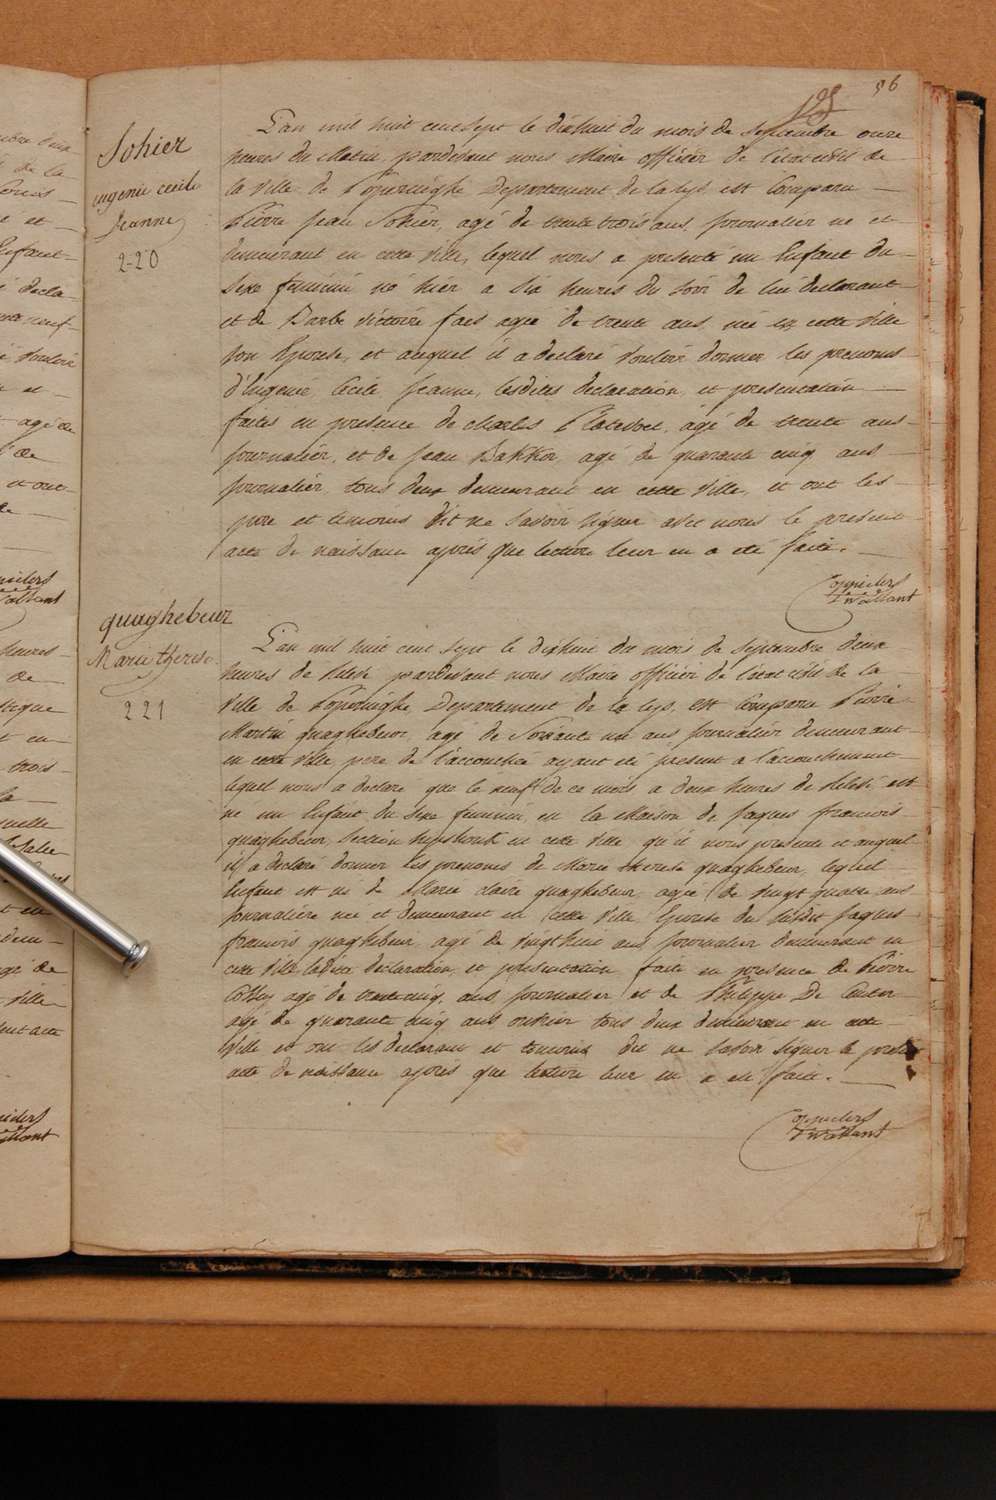 56
Sohier
eugenie cecile
Jeanne
220
L'an mil huit cent sept le dixhuit du mois de septembre onze
heures du Matin, pardevant nous Maire officier de l'etat civil de
la ville de Poperinghe Departement de la Lys est Comparu
Pierre Jean Sohier, agé de trente trois ans, journalier né et
demeurant en cette ville, lequel nous a presenté un Enfant du
sexe feminin né hier a six heures du soir de lui declarant
et de Barbe Victoire faes agée de trente ans, née en cette ville
son Epouse, et auquel il a declaré vouloir donner les prenoms
d'Eugenie, Cecile, Jeanne, lesdites declaration et presentation
faites en presence de Charles agé de trente ans
journalier, et de Jean Bakker agé de quarante cinq ans
journalier, tous deux demeurant en cette ville, et ont les
pere et temoins dit ne savoir signer avec nous le present
acte de naissance après que lecture leur en a eté faite.
Coppieters
t'wallant
quaghebeur
Marie therese
221
L'an mil huit cent sept le dixhuit du mois de septembre deux
heures de relevé pardevant nous Maire officier de l'etat civil de la
ville de Poperinghe, Departement de la Lys, est Comparu Pierre
Martin quaghebeur, agé de Soixante un ans journalier demeurant
en cette ville pere de l'accouchée ayant été present a l'accouchement
lequel nous a declaré que le neuf de ce mois a deux heures de relevé est
né un Enfant du sexe feminin en la Maison de Jaques francois
quaghebeur, Section en cette ville qu'il nous presente et auquel
il a declaré donner les prenoms de Marie therese quaghebeur, lequel
Enfant est né de Marie claire quaghebeur agée de vingt quatre ans
journaliere née et demeurant en cette ville Epouse du susdit Jaques
francois quaghebeur agé de vingthuit ans journalier demeurant en
cette ville ladite declaration et presentation faite en presence de Pierre
agé de trente cinq ans journalier et de Philippe De Cuter
agé de quarante cinq ans tous deux demeurant en cette
ville et ont les declarant et temoins dit ne savoir signer le present
acte de naissance après que lecture leur en a eté faite.
Coppieters
t'wallant